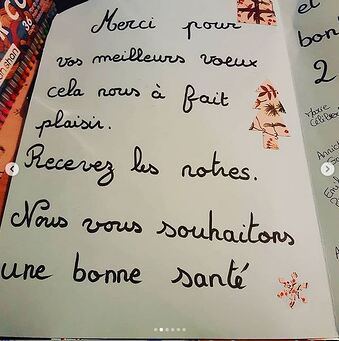 Merci pour
vos meilleurs voeux
cela nous à fait
plaisir.
Recevez les notres.
Nous vous souhaitons
une bonne santé
et
bon
2
Marie